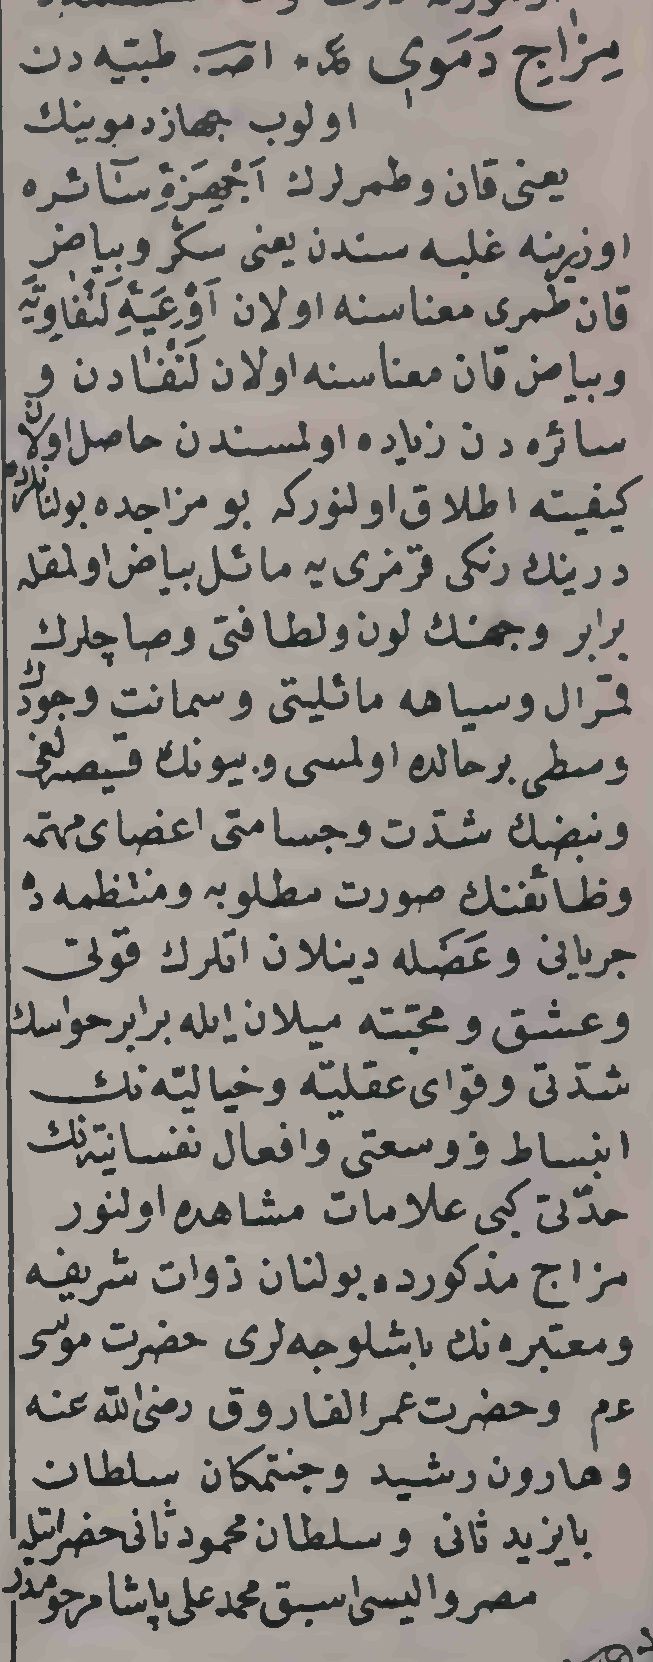 مِزَاجِ دَمَوِى اصـ. طبّيه دن
اولوب جهاز دموينك
يعنى قان و طمرلرك اَجْهِزَۀِ سَآئره
اوزرينه غلبه سندن يعنى سكر و بياض
قان طمرى معناسنه اولان اَوْعِيَۀِ لَنْفَاوِيَّه
و بياض قان معناسنه اولان لَنْفَادن و
سائره دن زياده اولمسندن حاصل اولان
كيفيته اطلاق اولنوركه بو مزاجده بولنانلرده
درينك رنكى قرمزى يه مائل بياض اولمقله
برابر وجهنك لون و لطافتى و صاچلرك
قرال و سياهه مائليتى و سمانت وجودك
وسطى برحالده اولمسى و بيونك قيصه لغى
و نبضك شدّت و جسامتى اعضاى مهمّه
وظائفنك صورت مطلوبه و منتظمه ده
جريانى و عَضَله دينلان اتلرك قوتى
و عشق و محبّته ميلان ايله برابر حواسك
شدّتى و قواى عقليّه و خياليّه نك
انبساط و وسعتى و افعال نفسانيّه نك
حدّتى كبى علامات مشاهده اولنور
مزاج مذكورده بولنان ذوات شريفه
و معتبره نك باشلوجه لرى حضرت موسى
عم و حضرت عمر الفاروق رضى الله عنه
و هارون رشيد و جنتمكان سلطان
بايزيد ثانى و سلطان محمود ثانى حضراتيله
مصر واليسى اسبق محمد على پاشا مرحومدر